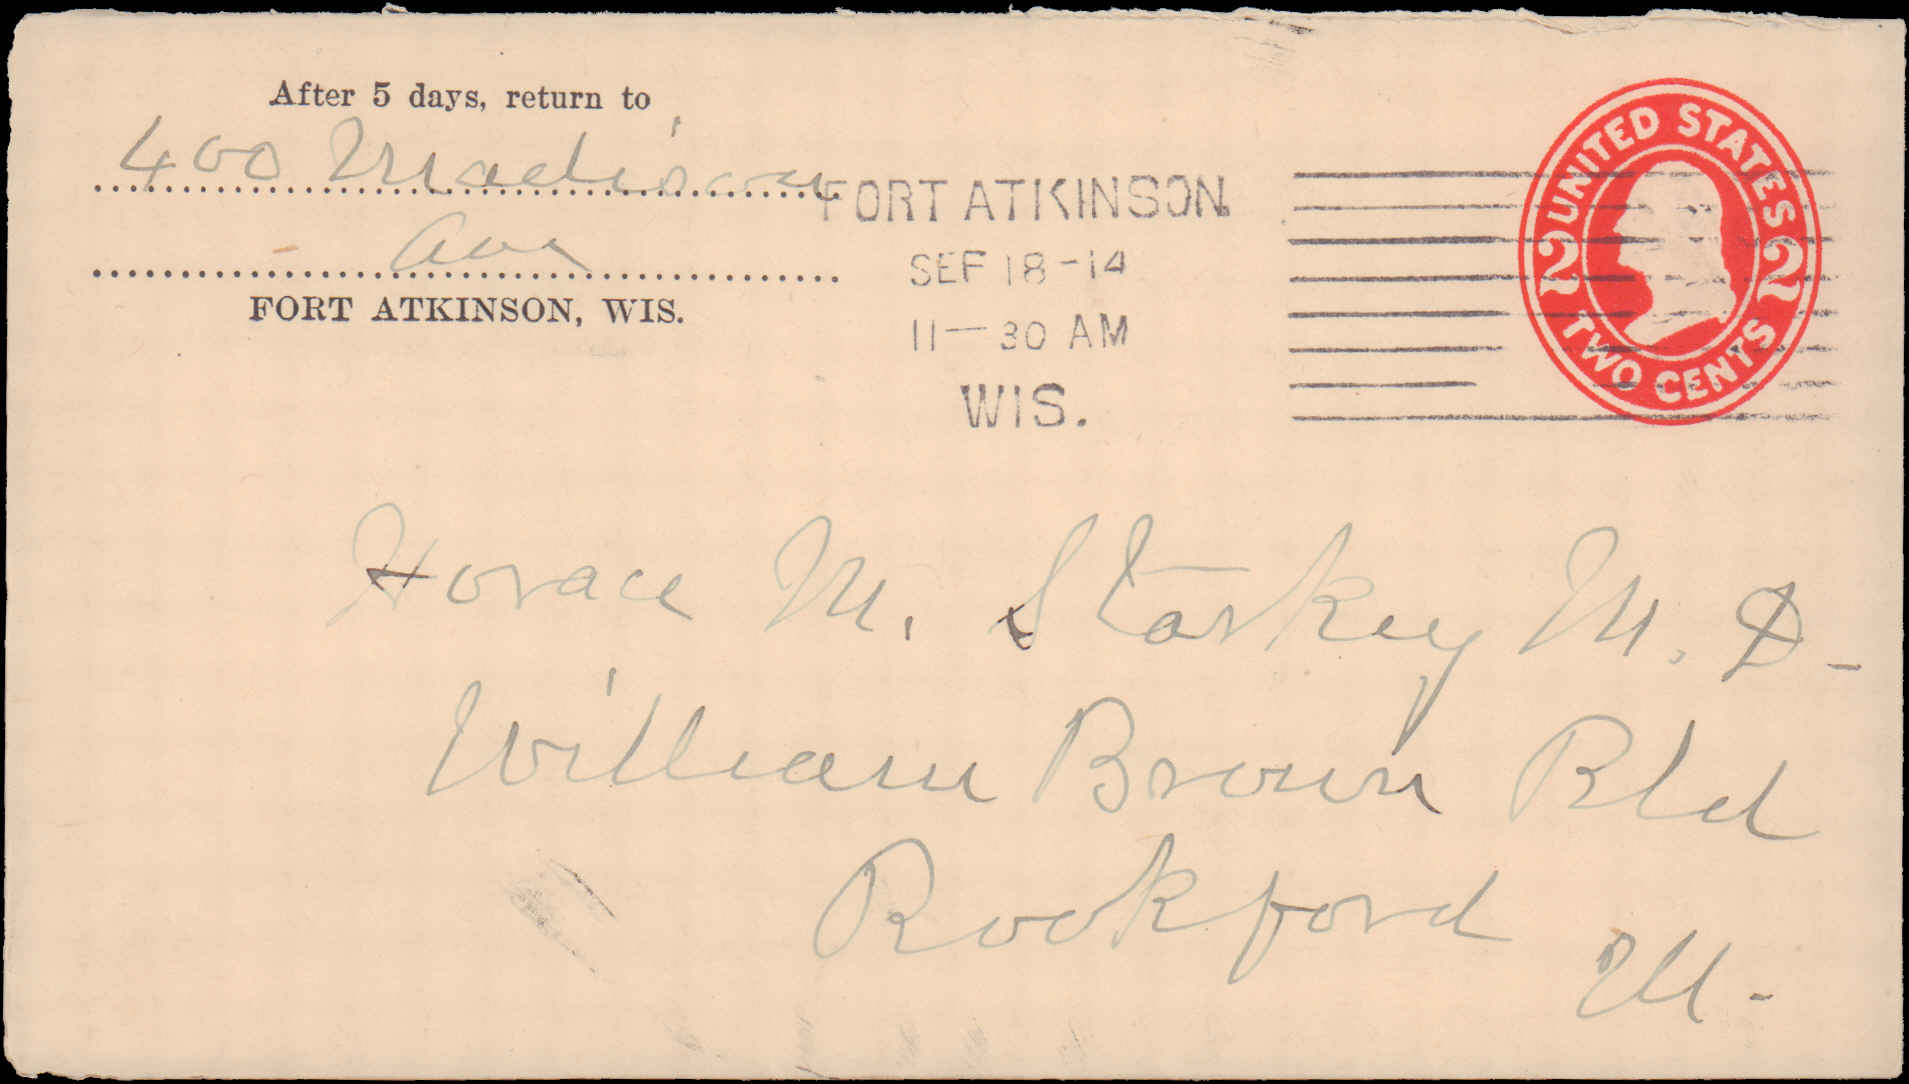 After 5 days, return to
400 Madison
Ave
FORT ATKINSON, WIS.
FORT ATKINSON.
SEP 18-14
11-30 AM
WIS.
UNITED STATES
2 2
TWO CENTS
Horace M. Starkey M. D-
William Brown Bld
Rockford
Ill-